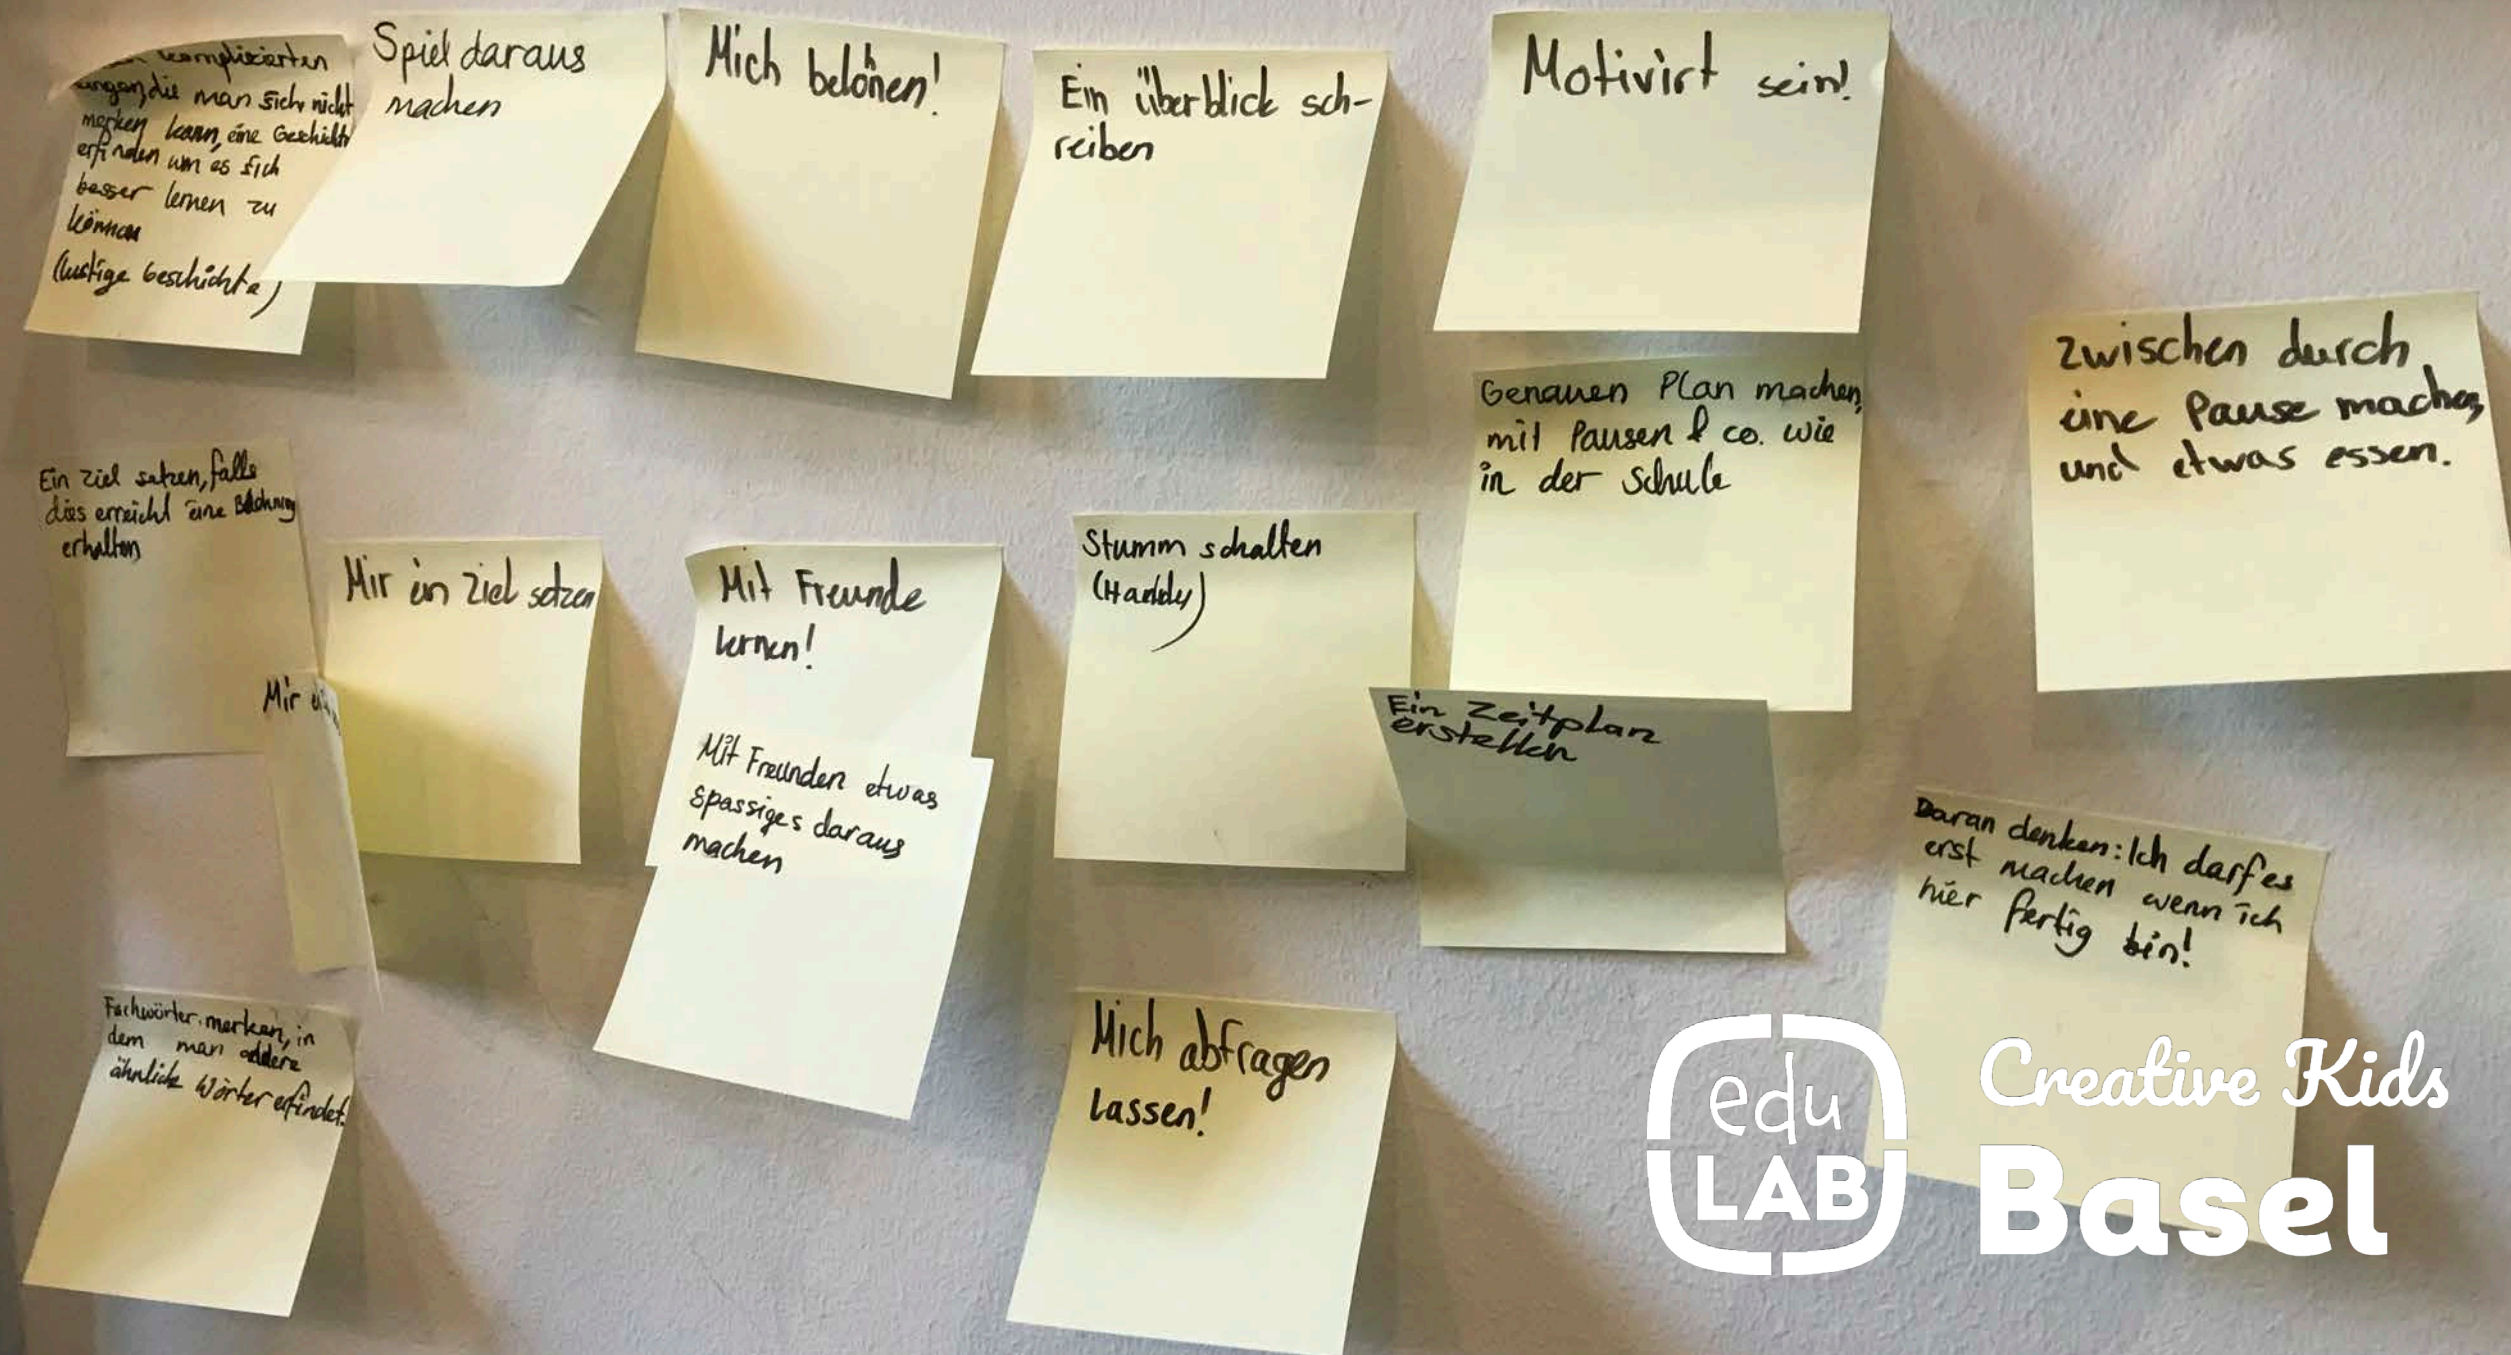 komplizierten
die man sich nicht
merken kann, eine Geschichte
erfinden um es sich
besser lernen zu
können
(lustige Geschichte)
Spiel daraus
machen
Mich belönen!
Ein überblick sch-
reiben
Motivirt sein!
Genauen Plan machen,
mit Pausen & co. wie
in der Schule
zwischen durch
eine Pause machen,
und etwas essen.
Ein Ziel setzen, falls
dies erreicht eine Belohnung
erhalten
Mir ein Ziel setzen
Mir
Mit Freunde
lernen!
Mit Freunden etwas
spassiges daraus
machen
Stumm schalten
(Handy)
Ein Zeitplan
erstellen
Daran denken: Ich darf es
erst machen wenn ich
hier fertig bin!
Fachwörter merken, in
dem man
ähnliche Wörter erfindet.
Mich abfragen
lassen!
edu
LAB
Creative Kids
Basel